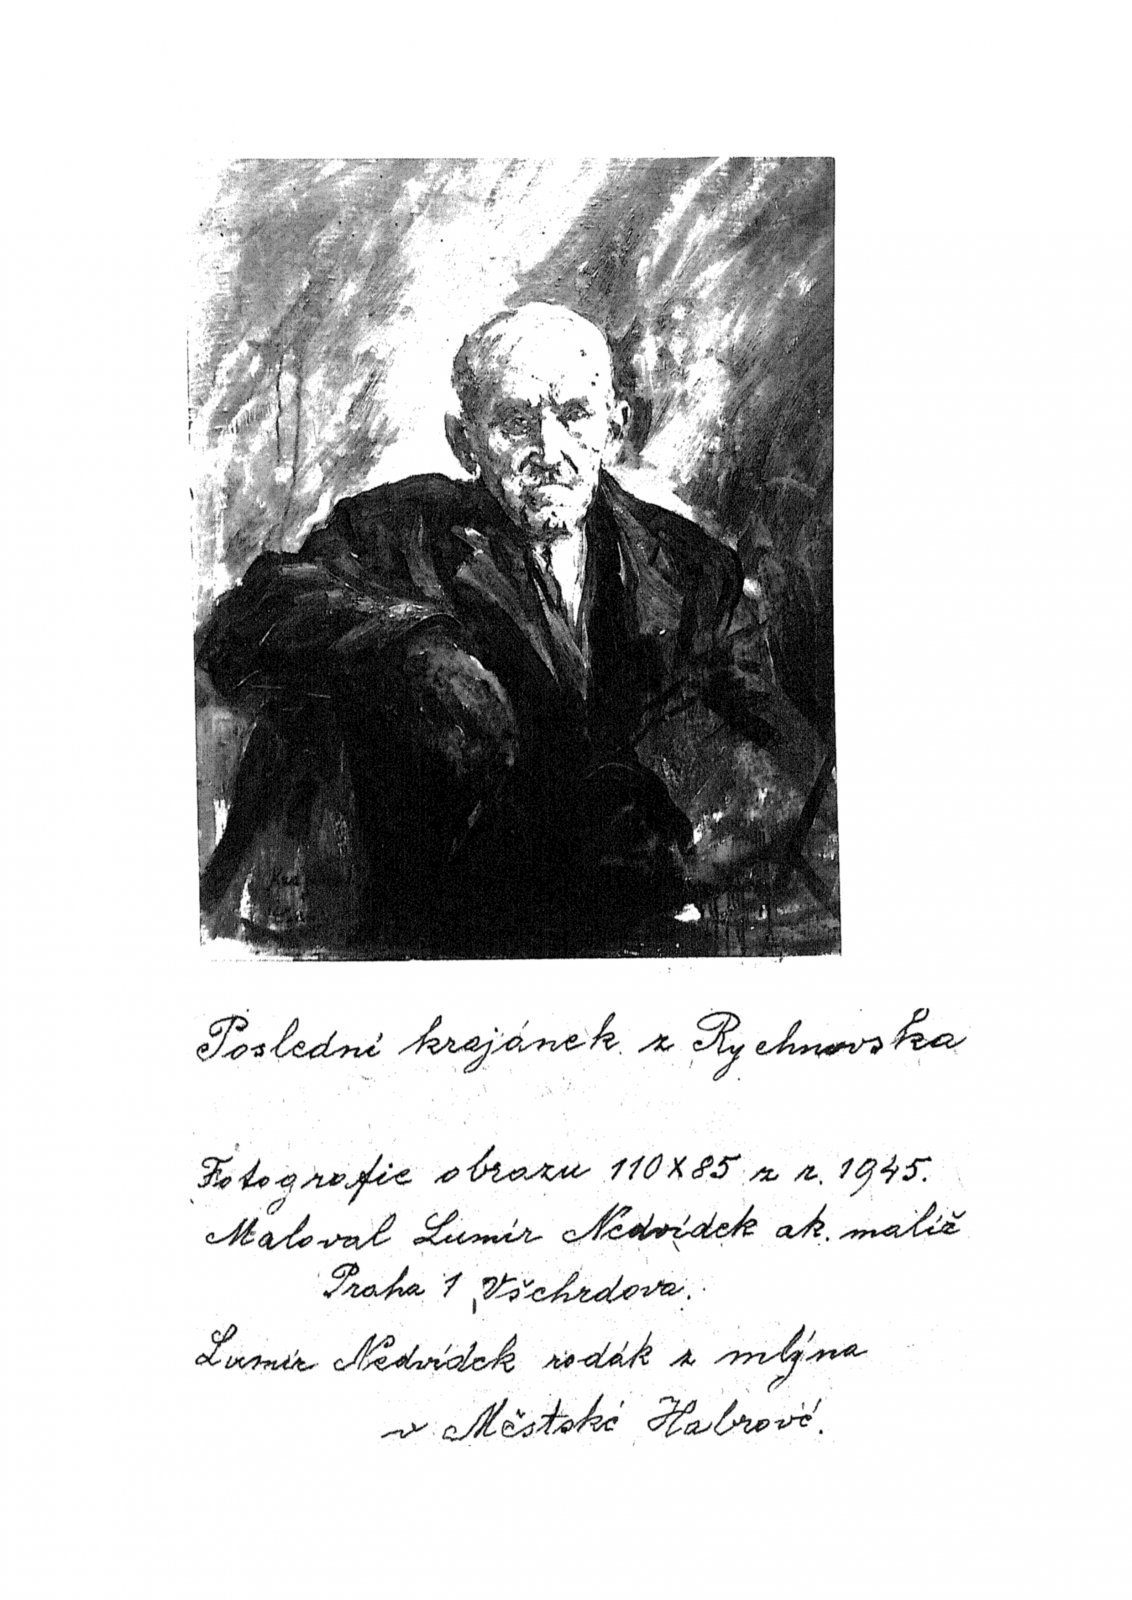 Poslední krajánek z Rychnovska
Fotografie obrazu 110x85 z r. 1945.
Maloval Lumír Nedvídek ak. malíř
Praha 1, Všehrdova.
Lumír Nedvídek rodák z mlýna
v Městské Habrové.